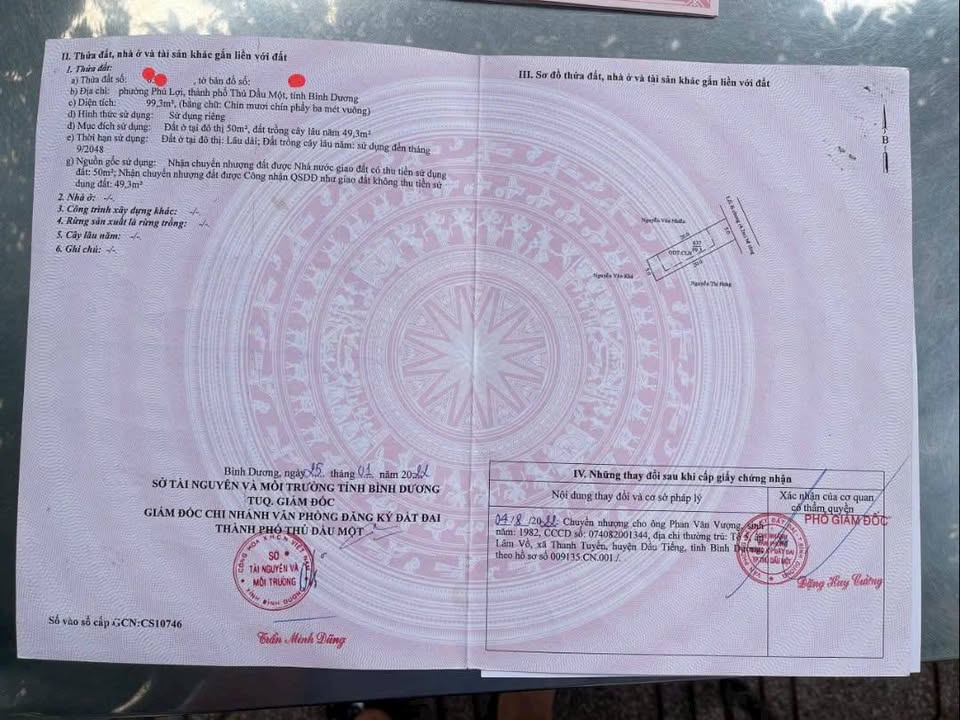 II. Thửa đất, nhà ở và tài sản khác gắn liền với đất
1. Thửa đất:
a) Thửa đất số: , tờ bản đồ số:
b) Địa chỉ: phường Phú Lợi, thành phố Thủ Dầu Một, tỉnh Bình Dương
c) Diện tích: 99,3m², (bằng chữ: Chín mươi chín phẩy ba mét vuông)
d) Hình thức sử dụng: Sử dụng riêng
đ) Mục đích sử dụng: Đất ở tại đô thị 50m², đất trồng cây lâu năm 49,3m²
e) Thời hạn sử dụng: Đất ở tại đô thị: Lâu dài; Đất trồng cây lâu năm: sử dụng đến tháng
9/2048
g) Nguồn gốc sử dụng: Nhận chuyển nhượng đất được Nhà nước giao đất có thu tiền sử dụng
đất: 50m²; Nhận chuyển nhượng đất được Công nhận QSDĐ như giao đất không thu tiền sử
dụng đất: 49,3m²
2. Nhà ở: -/-
3. Công trình xây dựng khác: -/-
4. Rừng sản xuất là rừng trồng: -/-
5. Cây lâu năm: -/-
6. Ghi chú: -/-
Bình Dương, ngày 25 tháng 01 năm 2022
SỞ TÀI NGUYÊN VÀ MÔI TRƯỜNG TỈNH BÌNH DƯƠNG
TUQ. GIÁM ĐỐC
GIÁM ĐỐC CHI NHÁNH VĂN PHÒNG ĐĂNG KÝ ĐẤT ĐAI
THÀNH PHỐ THỦ DẦU MỘT
SỞ
TÀI NGUYÊN VÀ
MÔI TRƯỜNG
TỈNH BÌNH DƯƠNG
Trần Minh Dũng
Số vào sổ cấp GCN:CS10746
III. Sơ đồ thửa đất, nhà ở và tài sản khác gắn liền với đất
B
Nguyễn Văn
ODT+CLN
Nguyễn Văn Khá
Nguyễn Thị
IV. Những thay đổi sau khi cấp giấy chứng nhận
Nội dung thay đổi và cơ sở pháp lý
Xác nhận của cơ quan
có thẩm quyền
04/8/2022: Chuyển nhượng cho ông Phan Văn Vượng, sinh
năm: 1982, CCCD số: 074082001344, địa chỉ thường trú: Tổ ấp
Lâm Vồ, xã Thanh Tuyền, huyện Dầu Tiếng, tỉnh Bình Dương
theo hồ sơ 009135.CN.001./.
PHÓ GIÁM ĐỐC
Đặng Huy Cường